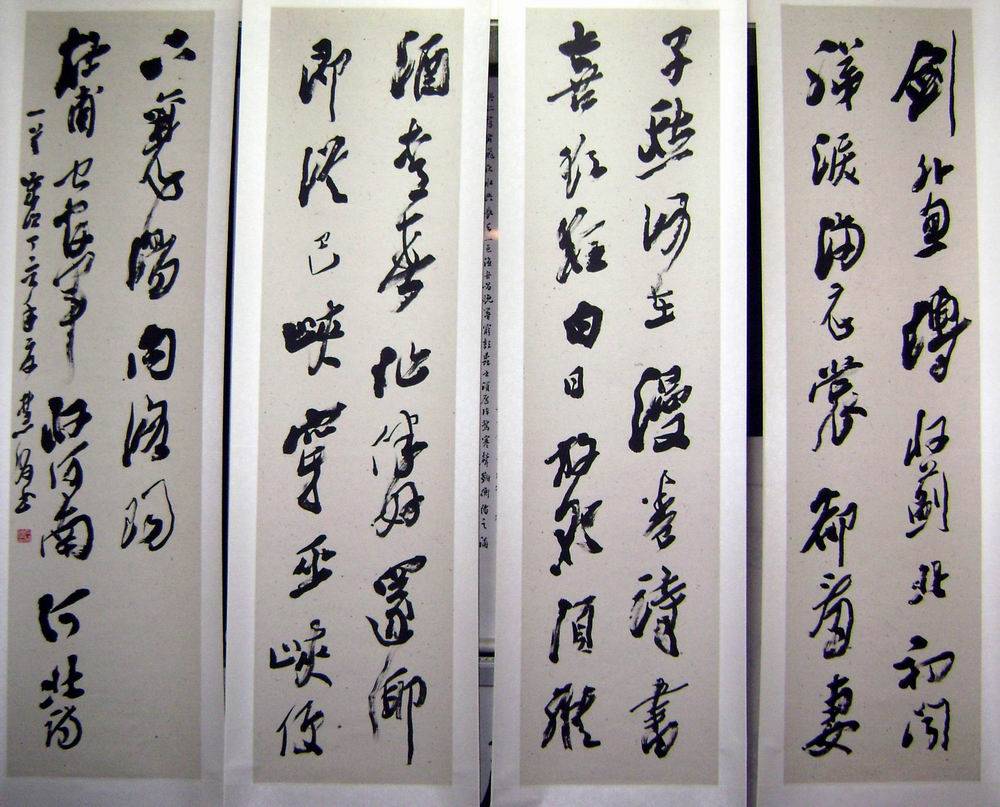 劍外忽傳收薊北初聞
涕淚滿衣裳却看妻
子愁何在漫卷詩書
喜欲狂白日放歌須縱
酒青春作伴好還鄉
即從巴峽穿巫峽便
下襄陽向洛陽
杜甫聞官軍收河南河北詩
一首歲次丁亥年夏書